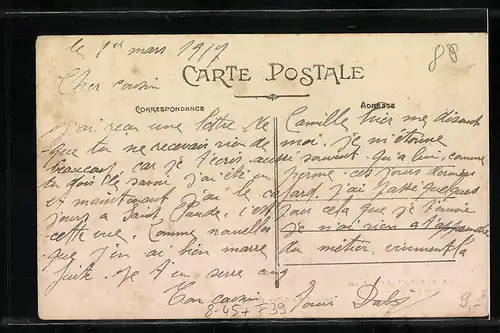 le 1er mars 1917
88
Cher cousin
CARTE POSTALE
CORRESPONDANCE
ADRESSE
J'ai reçu une lettre de Camille hier me disant
que tu ne recevais rien de moi. Je m'étonne
beaucoup car je t'écris aussi souvent qu'à lui, comme
tu dois le savoir j'ai été en perme ces jours derniers
et maintenant j'ai le cafard. j'ai passé quelques
jours a Saint Claude, c'est pour cela que je t'envoie
cette vue. Comme nouvelles je n'ai rien a t'apprendre
que j'en ai bien marre du métier, vivement la
fuite. Je t'en serre cinq
Ton cousin Louis
8-45+ F39
9.-